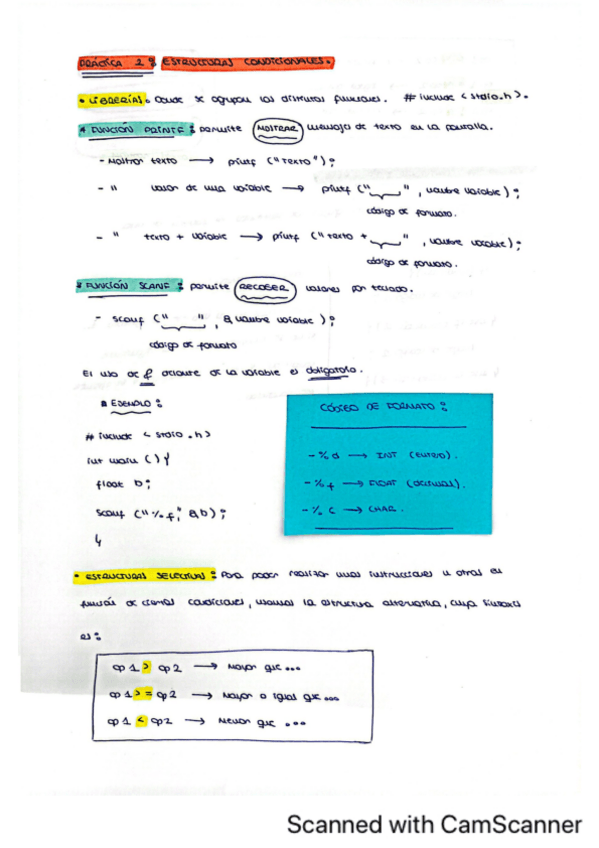 PRÁCTICA 2: ESTRUCTURAS CONDICIONALES.
• LIBRERÍAS: Donde se agrupan las distintas funciones. #include <stdio.h>.
* FUNCIÓN PRINTF: permite MOSTRAR mensaje de texto en la pantalla.
- Mostrar texto → printf ("Texto");
- " valor de una variable → printf ("   ", nombre variable);
código de formato.
- " texto + variable → printf ("Texto +   ", nombre variable);
código de formato.
* FUNCIÓN SCANF: permite RECOGER valores por teclado.
- scanf ("   ", & nombre variable);
código de formato
El uso de & delante de la variable es obligatorio.
EJEMPLO:
#include <stdio.h>
int main () {
float b;
scanf ("%f", &b);
}
CÓDIGO DE FORMATO:
- %d → INT (entero).
- %f → FLOAT (decimal).
- %c → CHAR.
• ESTRUCTURAS SELECTIVAS: Para poder realizar unas instrucciones u otras en
función de ciertas condiciones, usamos la estructura alternativa, cuya sintaxis
es:
op1 > op2 → Mayor que...
op1 >= op2 → Mayor o igual que...
op1 < op2 → Menor que...
Scanned with CamScanner